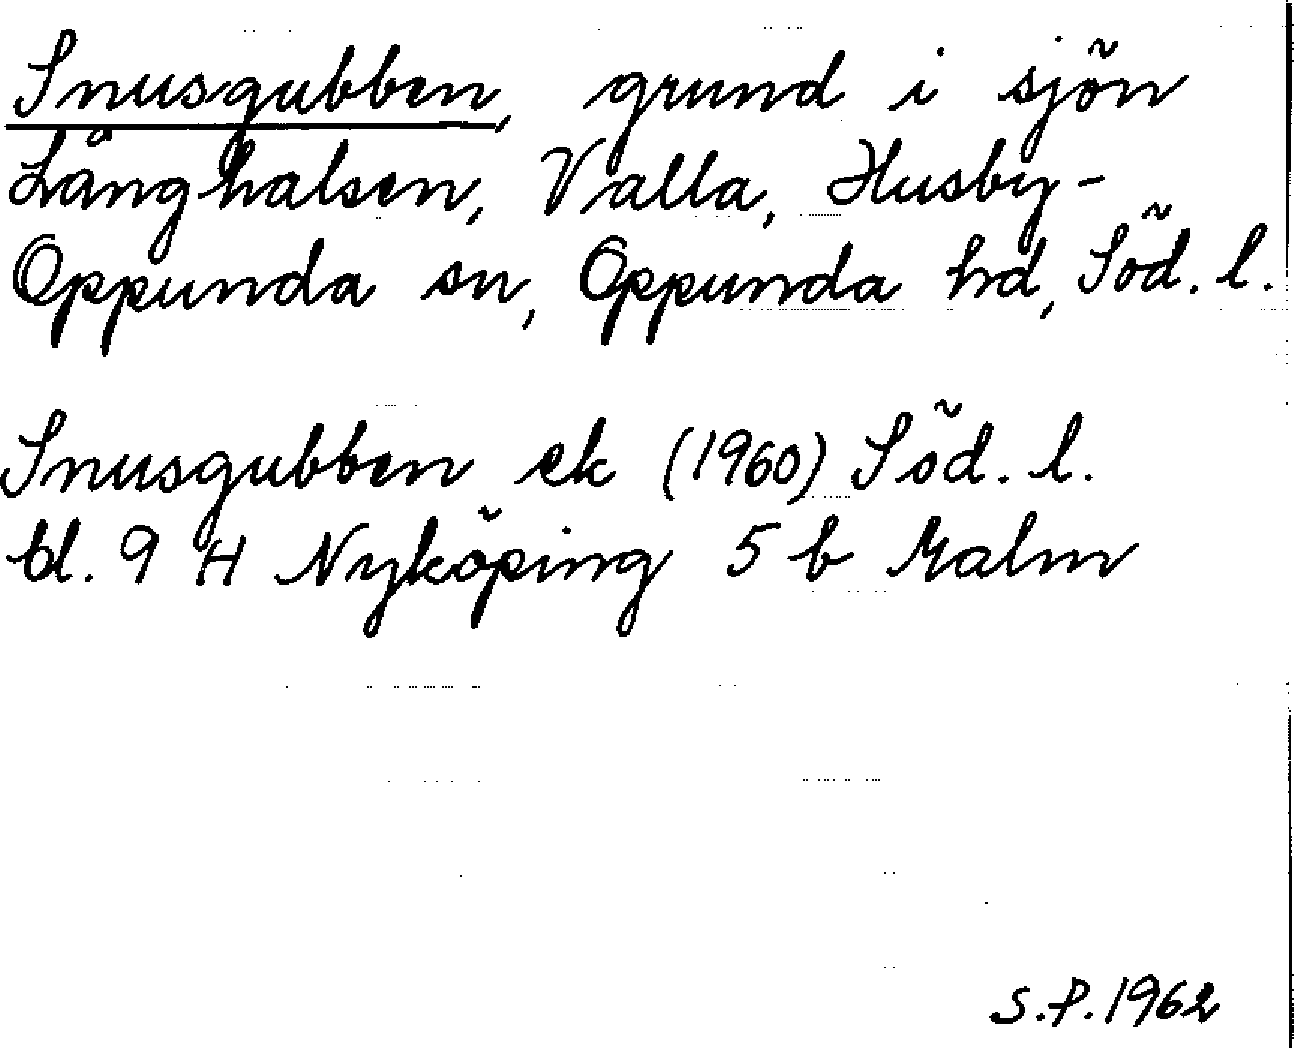 Snusgubben, grund i sjön
Långhalsen, Valla, Husby-
Oppunda sn, Oppunda hd, Söd. l.
Snusgubben ek (1960) Söd. l.
bl. 9 H Nyköping 5 b Malm
S.P. 1962